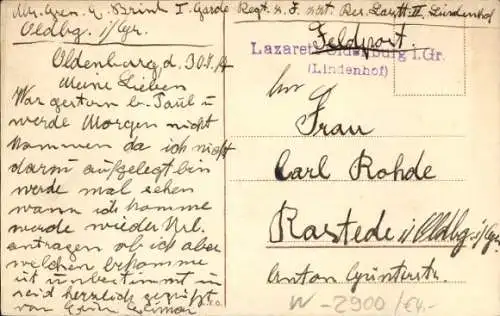 I. Garde Regt. z. F. Res. Lazrtt. II, Lindenhof
Oldbg. i/Gr.
Feldpost.
Lazarett Oldenburg i.Gr.
(Lindenhof)
Oldenburg, d. 30.8.
Meine Lieben
War gestern b. Paul u
werde Morgen nicht
kommen da ich nicht
darin aufgelegt bin
werde mal sehen
wann ich komme
werde wieder Url.
antragen ob ich aber
welchen bekomme
ist unbestimmt u
seid herzlich gegrüßt
von
Frau
Carl Rohde
Rastede i/Oldbg. i/Gr.
Anton Günterstr.
W-2900/€4.-